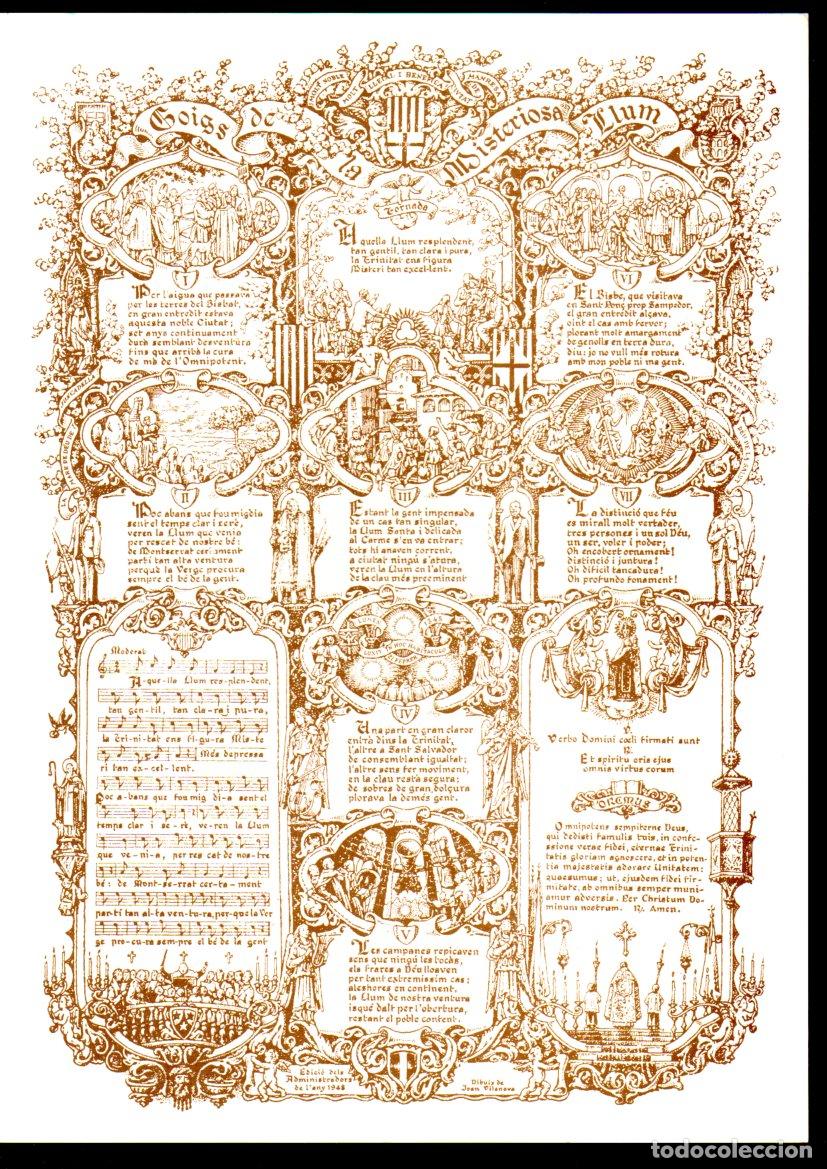 Goigs de la Misteriosa Llum
Tornada
Aquella Llum resplendent,
tan gentil, tan clara i pura,
la Trinitat ens figura
Misteri tan excel·lent.
I
Per l'aigua que passava
per les terres del Bisbat,
en gran entredit estava
aquesta noble Ciutat;
set anys continuament
durà semblant desventura
fins que arribà la cura
de mà de l'Omnipotent.
VI
El Bisbe, que visitava
en Sant Ponç prop Sampedor,
el gran entredit alçava,
oint el cas amb fervor;
plorant molt amargament
de genolls en terra dura,
diu: jo no vull més rotura
amb mon poble ni ma gent.
II
Poc abans que fou migdia
sent el temps clar i serè,
veren la Llum que venia
per rescat de nostre bé:
de Montserrat certament
partí tan alta ventura
perquè la Verge procura
sempre el bé de la gent.
III
Estant la gent impensada
de un cas tan singular,
la Llum Santa i delicada
al Carme s'en va entrar;
tots hi anaven corrent,
a ciutat ningú s'atura,
veren la Llum en l'altura
de la clau més preeminent
VII
La distinció que féu
es mirall molt vertader,
tres persones i un sol Déu,
un ser, voler i poder;
Oh encobert ornament!
distinció i juntura!
Oh dificil tancadura!
Oh profundo fonament!
Moderat
A-que-lla Llum res-plen-dent,
tan gen-til, tan cla-ra i pu-ra,
la Tri-ni-tat ens fi-gu-ra Mis-te
Més depressa
ri tan ex-cel-lent.
Poc a-bans que fou mig di-a sent el
temps clar i se-rè, ve-ren la Llum
que ve-ni-a, per res cat de nos-tre
bé: de Mont-se-rrat cer-ta-ment
par-tí tan al-ta ven-tu-ra, per-que la Ver
ge pro-cu-ra sem-pre el bé de la gent
IV
Una part en gran claror
entrà dins la Trinitat,
l'altre a Sant Salvador
de consemblant igualtat;
l'altre sens fer moviment,
en la clau restà segura;
de sobres de gran dolçura
plorava la demés gent.
V
Les campanes repicaven
sens que ningú les tocàs,
els frares a Déu lloaven
per tant extremíssim cas;
aleshores en continent,
la Llum de nostra ventura
isqué dalt per l'obertura,
restant el poble content.
V.
Verbo Domini cœli firmati sunt
R.
Et spiritu oris ejus
omnis virtus eorum
OREMUS
Omnipotens sempiterne Deus,
qui dedisti famulis tuis, in confe-
ssione verae fidei, eternae Trini-
tatis gloriam agnoscere, et in poten-
tia majestatis adorare Unitatem:
quaesumus; ut, ejusdem fidei fir-
mitate, ab omnibus semper muni-
amur adversis. Per Christum Do-
minum nostrum. R. Amen.
Edició dels
Administradors
de l'any 1948
Dibuix de
Joan Vilanova
todocoleccion